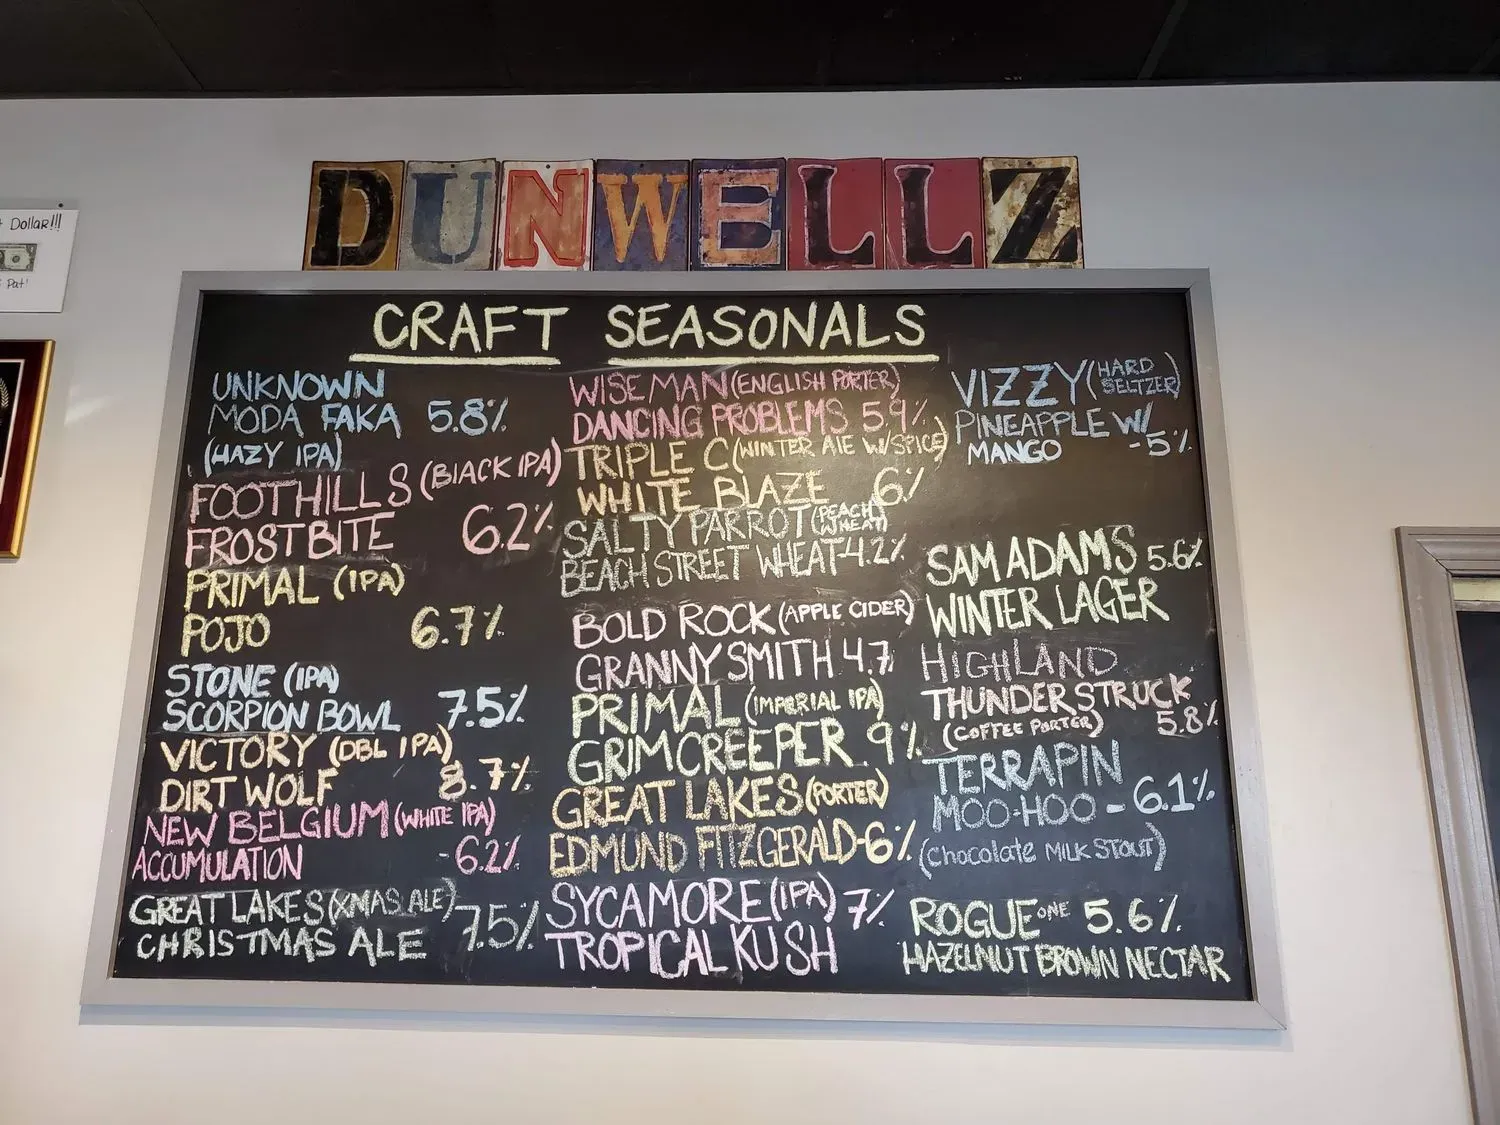 DUNWELLZ
Dollar!!!
Pat!
CRAFT SEASONALS
UNKNOWN
MODA FAKA 5.8%
(HAZY IPA)
FOOTHILLS (BLACK IPA)
FROSTBITE 6.2%
PRIMAL (IPA)
POJO 6.7%
STONE (IPA)
SCORPION BOWL 7.5%
VICTORY (DBL IPA)
DIRT WOLF 8.7%
NEW BELGIUM (WHITE IPA)
ACCUMULATION -6.2%
GREAT LAKES (XMAS ALE)
CHRISTMAS ALE 7.5%
WISE MAN (ENGLISH PORTER)
DANCING PROBLEMS 5.9%
TRIPLE C (WINTER ALE W/SPICE)
WHITE BLAZE 6%
SALTY PARROT (PEACH WHEAT)
BEACH STREET WHEAT-4.2%
BOLD ROCK (APPLE CIDER)
GRANNY SMITH 4.7
PRIMAL (IMPERIAL IPA)
GRIMCREEPER 9%
GREAT LAKES (PORTER)
EDMUND FITZGERALD-6%
SYCAMORE (IPA) 7%
TROPICAL KUSH
VIZZY (HARD SELTZER)
PINEAPPLE W/
MANGO -5%
SAM ADAMS 5.6%
WINTER LAGER
HIGHLAND
THUNDERSTRUCK
(COFFEE PORTER) 5.8%
TERRAPIN
MOO-HOO - 6.1%
(Chocolate MILK STOUT)
ROGUE ONE 5.6%
HAZELNUT BROWN NECTAR